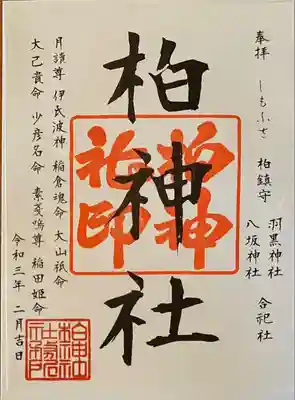 奉拝 しもふさ 柏鎮守 羽黒神社 合祀社
八坂神社
柏神社
柏神
社印
月讀尊 伊氐波神 稲倉魂命 大山祇命
大己貴命 少彦名命 素戔嗚尊 稲田姫命
令和三年 二月吉日